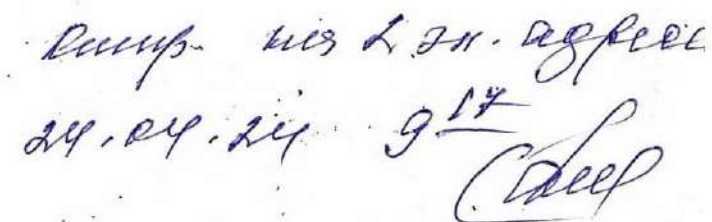 отпр. на 2 эл. адреса
24.04.24 9 17